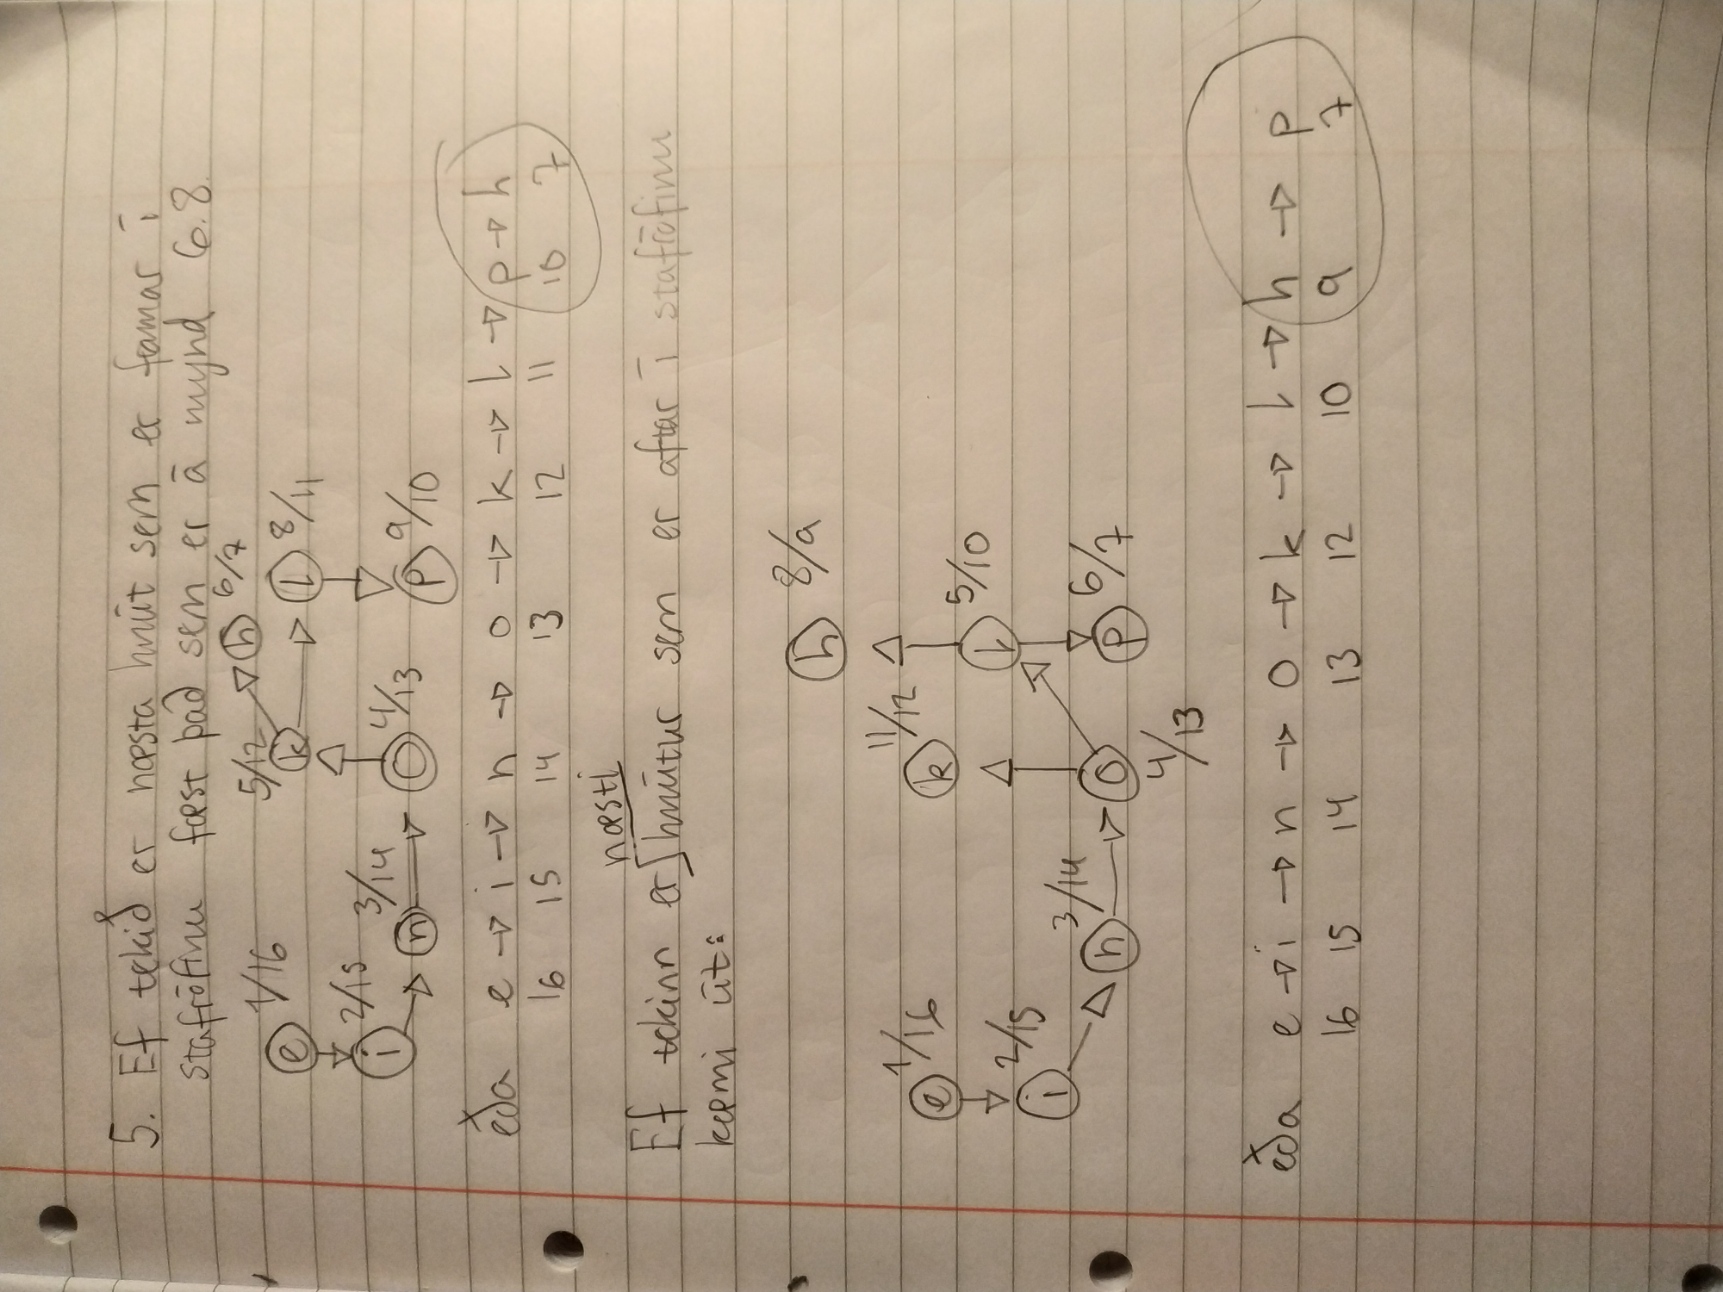 5. Ef tekið er næsta hnút sem er framar í
stafrófinu fæst það sem er á mynd 6.8.
5/12 h 6/7
e 1/16 k l 8/11
i 2/15 n 3/14 o 4/13 p 9/10
eða e → i → n → o → k → l → p → h
16 15 14 13 12 11 10 7
næsti
Ef tekinn er hnútur sem er aftar í stafrófinu
kæmi út:
h 8/9
e 1/16 k 11/12
l 5/10
i 2/15
n 3/14 o p 6/7
4/13
eða e → i → n → o → k → l → h → p
16 15 14 13 12 10 9 7